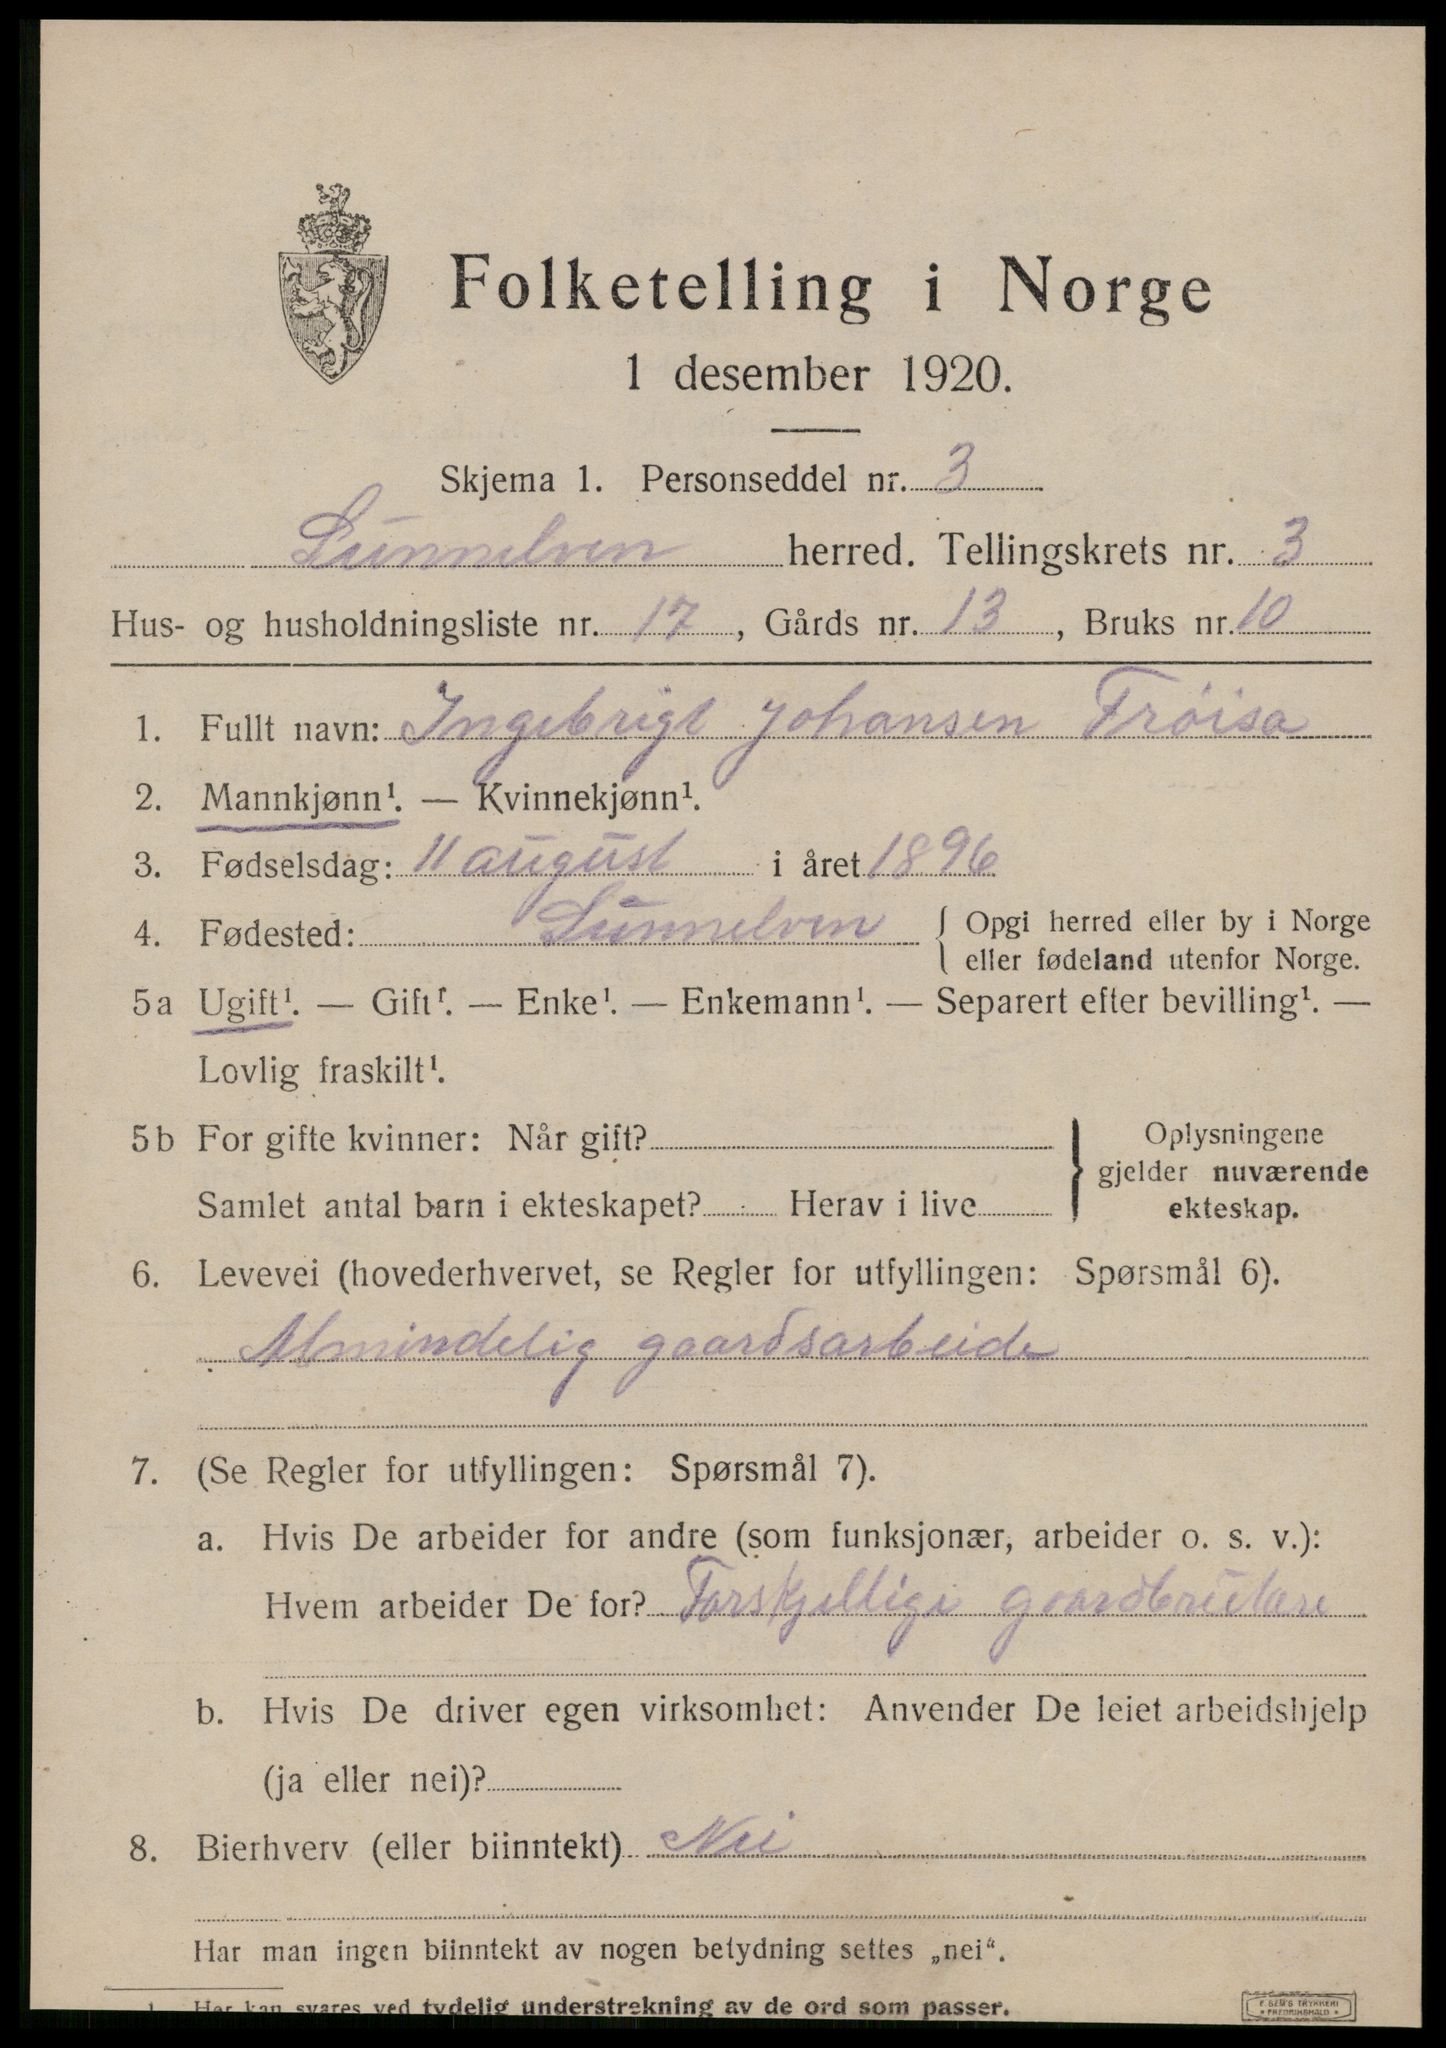 Folketelling i Norge
1 desember 1920.
Skjema 1. Personseddel nr. 3
Sunnelven herred. Tellingskrets nr. 3
Hus- og husholdningsliste nr. 17, Gårds nr. 13, Bruks nr. 10
1. Fullt navn: Ingebrigt Johansen Frøisa
2. Mannkjønn¹. — Kvinnekjønn¹.
3. Fødselsdag: 11 august i året 1896
4. Fødested: Sunnelven { Opgi herred eller by i Norge
eller fødeland utenfor Norge.
5a Ugift¹. — Gift¹. — Enke¹. — Enkemann¹. — Separert efter bevilling¹. —
Lovlig fraskilt¹.
5b For gifte kvinner: Når gift? } Oplysningene
gjelder nuværende
Samlet antal barn i ekteskapet? Herav i live ekteskap.
6. Levevei (hovederhvervet, se Regler for utfyllingen: Spørsmål 6).
Almindelig gaardsarbeide
7. (Se Regler for utfyllingen: Spørsmål 7).
a. Hvis De arbeider for andre (som funksjonær, arbeider o. s. v.):
Hvem arbeider De for? Forskjellige gaardbrukere
b. Hvis De driver egen virksomhet: Anvender De leiet arbeidshjelp
(ja eller nei)?
8. Bierhverv (eller biinntekt) Nei
Har man ingen biinntekt av nogen betydning settes „nei“.
1 Her kan svares ved tydelig understrekning av de ord som passer.
F. SEM'S TRYKKERI
• FREDRIKSHALD •